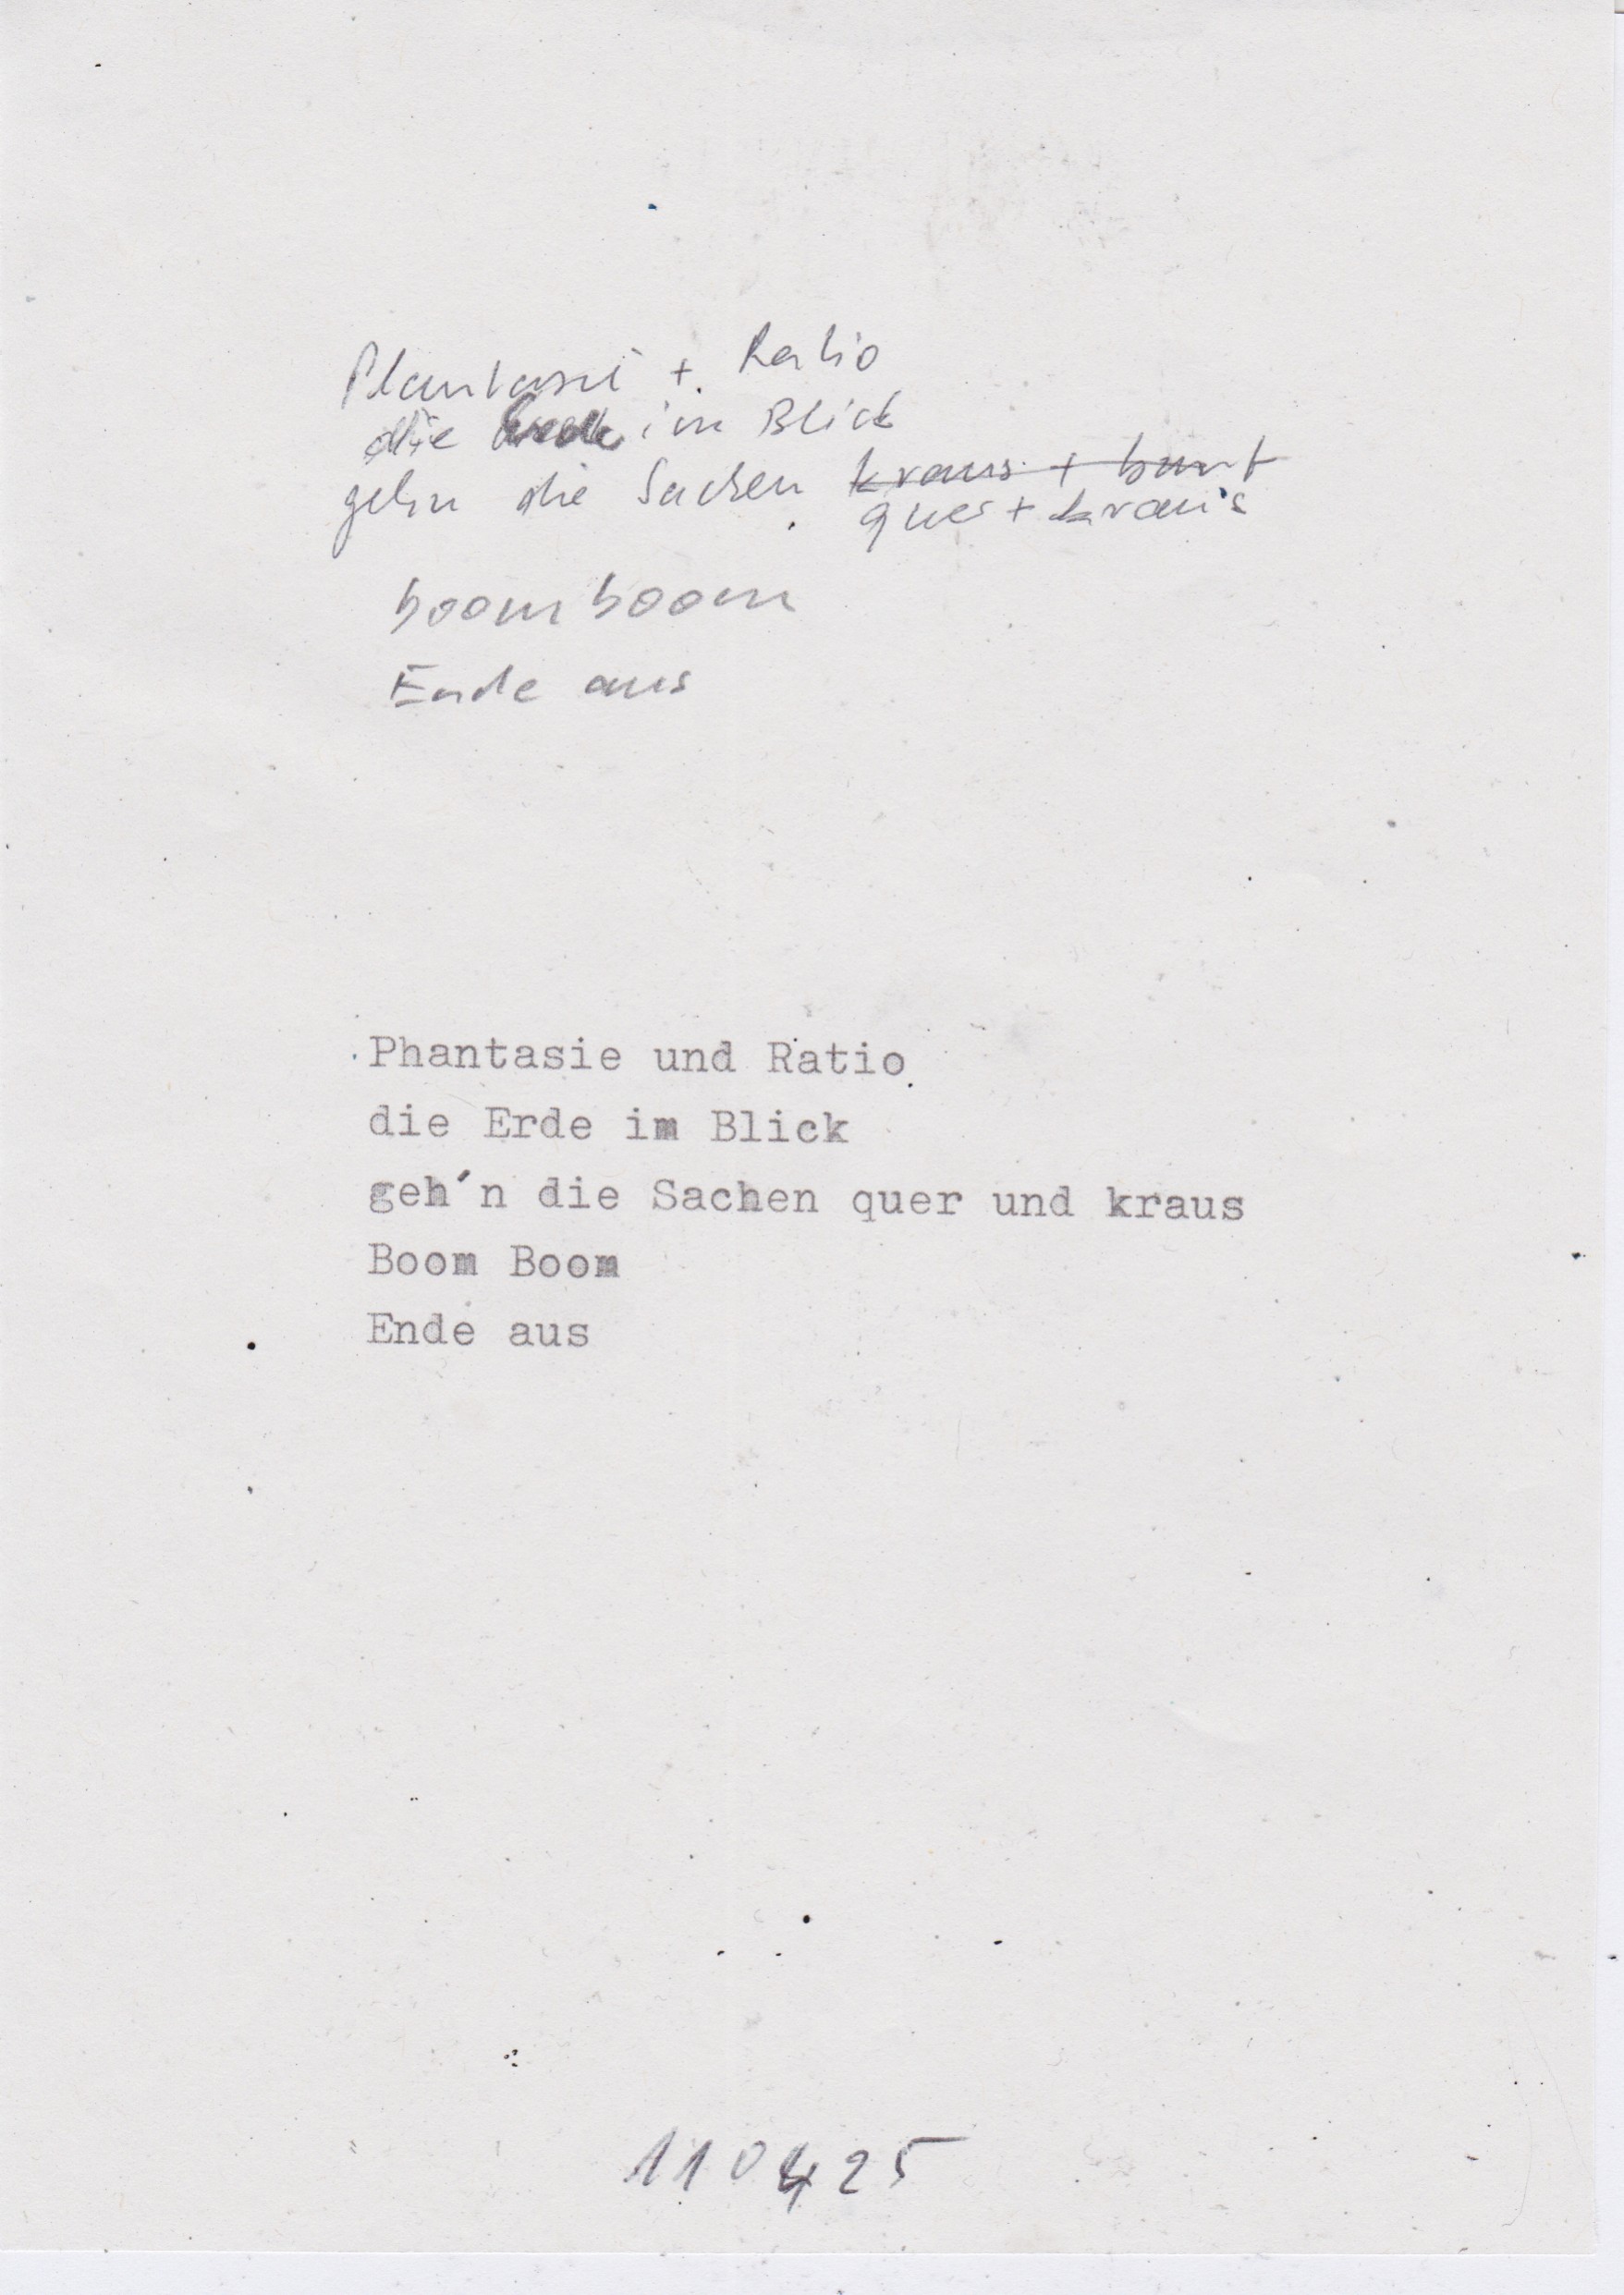 Phantasie + Ratio
die Erde im Blick
gehn die Sachen kraus + bunt
quer + kraus
boom boom
Ende aus
Phantasie und Ratio
die Erde im Blick
geh´n die Sachen quer und kraus
Boom Boom
Ende aus
110425